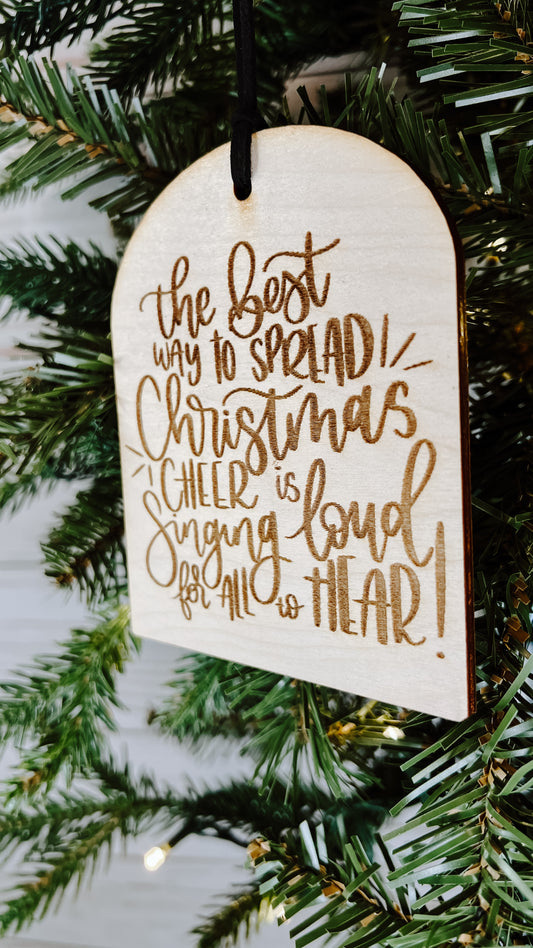 the best
WAY to SPREAD
Christmas
CHEER is
Singing loud
for ALL to HEAR!